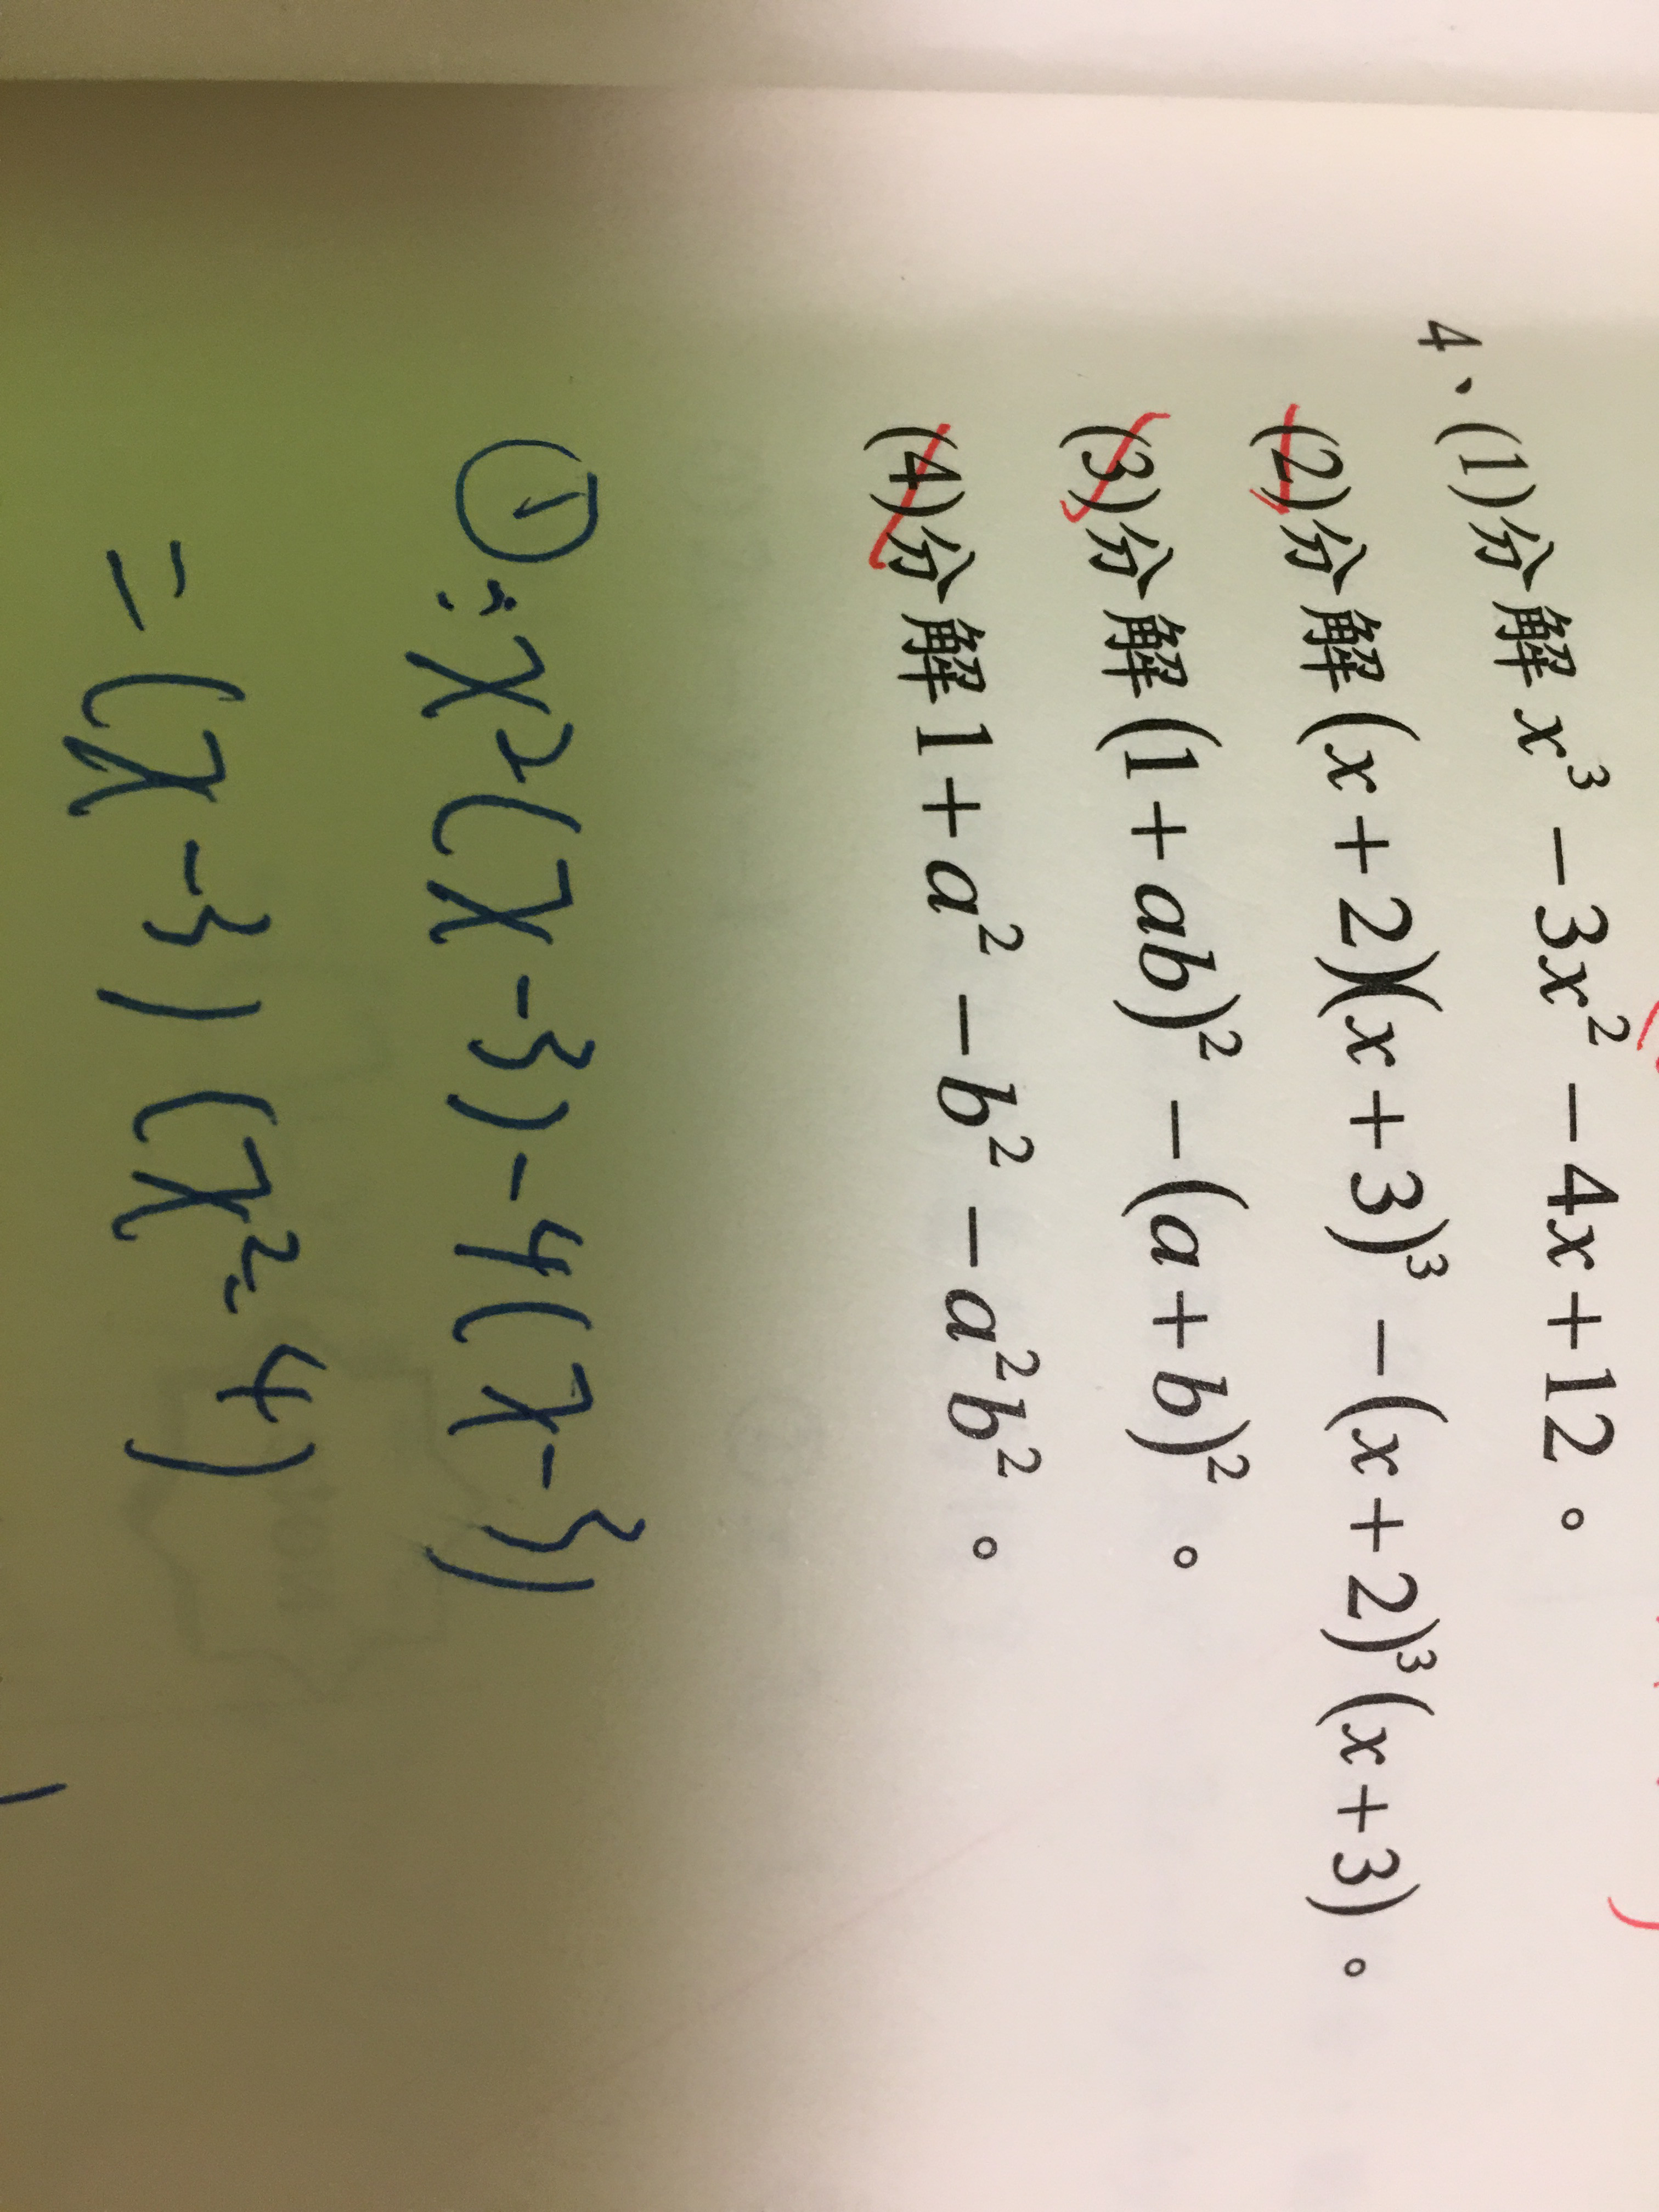 4、(1)分解 x³ − 3x² − 4x + 12。
(2)分解 (x + 2)(x + 3)³ − (x + 2)³(x + 3)。
(3)分解 (1 + ab)² − (a + b)²。
(4)分解 1 + a² − b² − a²b²。
①: x²(x-3)-4(x-3)
=(x-3)(x²-4)